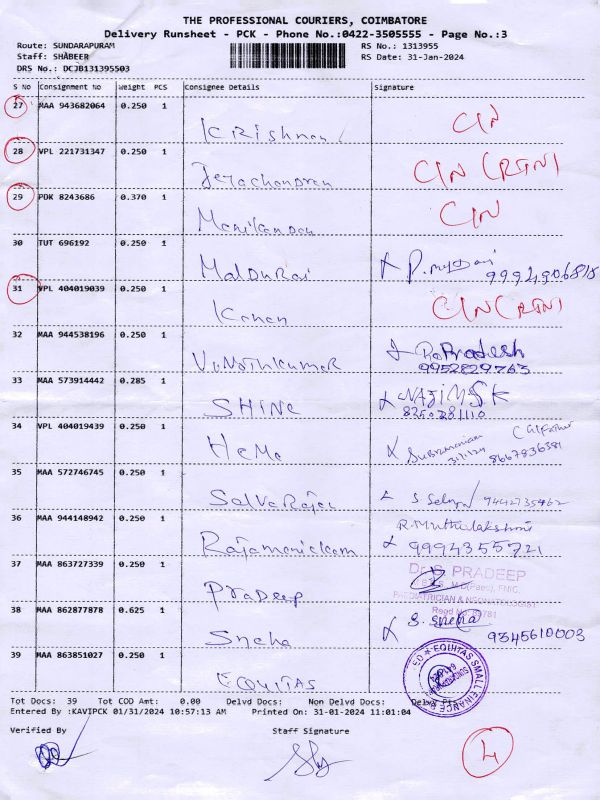 THE PROFESSIONAL COURIERS, COIMBATORE
Delivery Runsheet - PCK - Phone No.:0422-3505555 - Page No.:3
Route: SUNDARAPURAM RS No.: 1313955
Staff: SHABEER RS Date: 31-Jan-2024
DRS No.: DCJB131395503
S No Consignment No Weight PCS Consignee Details Signature
27 MAA 943682064 0.250 1
Krishnan C/N
28 VPL 221731347 0.250 1
Jeyachandran C/N (RTN)
29 PDK 8243686 0.370 1
Manikandan C/N
30 TUT 696192 0.250 1
MalduRai 9994906818
31 VPL 404019039 0.250 1
Kanan C/N (RTN)
32 MAA 944538196 0.250 1
Vinothkumar Pradesh
9952829763
33 MAA 573914442 0.285 1
SHINE NAZIM SK
8250281110
34 VPL 404019439 0.250 1
HeMa Subramaniam
31/1/24 8667836381
35 MAA 572746745 0.250 1
SelvaRaj S Selva 9442735462
36 MAA 944148942 0.250 1
R. Muthulakshmi
Rajamanickam 9994355721
37 MAA 863727339 0.250 1
Dr. S. PRADEEP
PraDeep
PAEDIATRICIAN & NEONATOLOGIST
38 MAA 862877878 0.625 1
Sneha S. Sneha 9345610003
39 MAA 863851027 0.250 1
EQUITAS EQUITAS SMALL FINANCE
Tot Docs: 39 Tot COD Amt: 0.00 Delvd Docs: Non Delvd Docs:
Entered By :KAVIPCK 01/31/2024 10:57:13 AM Printed On: 31-01-2024 11:01:04
Verified By Staff Signature
4